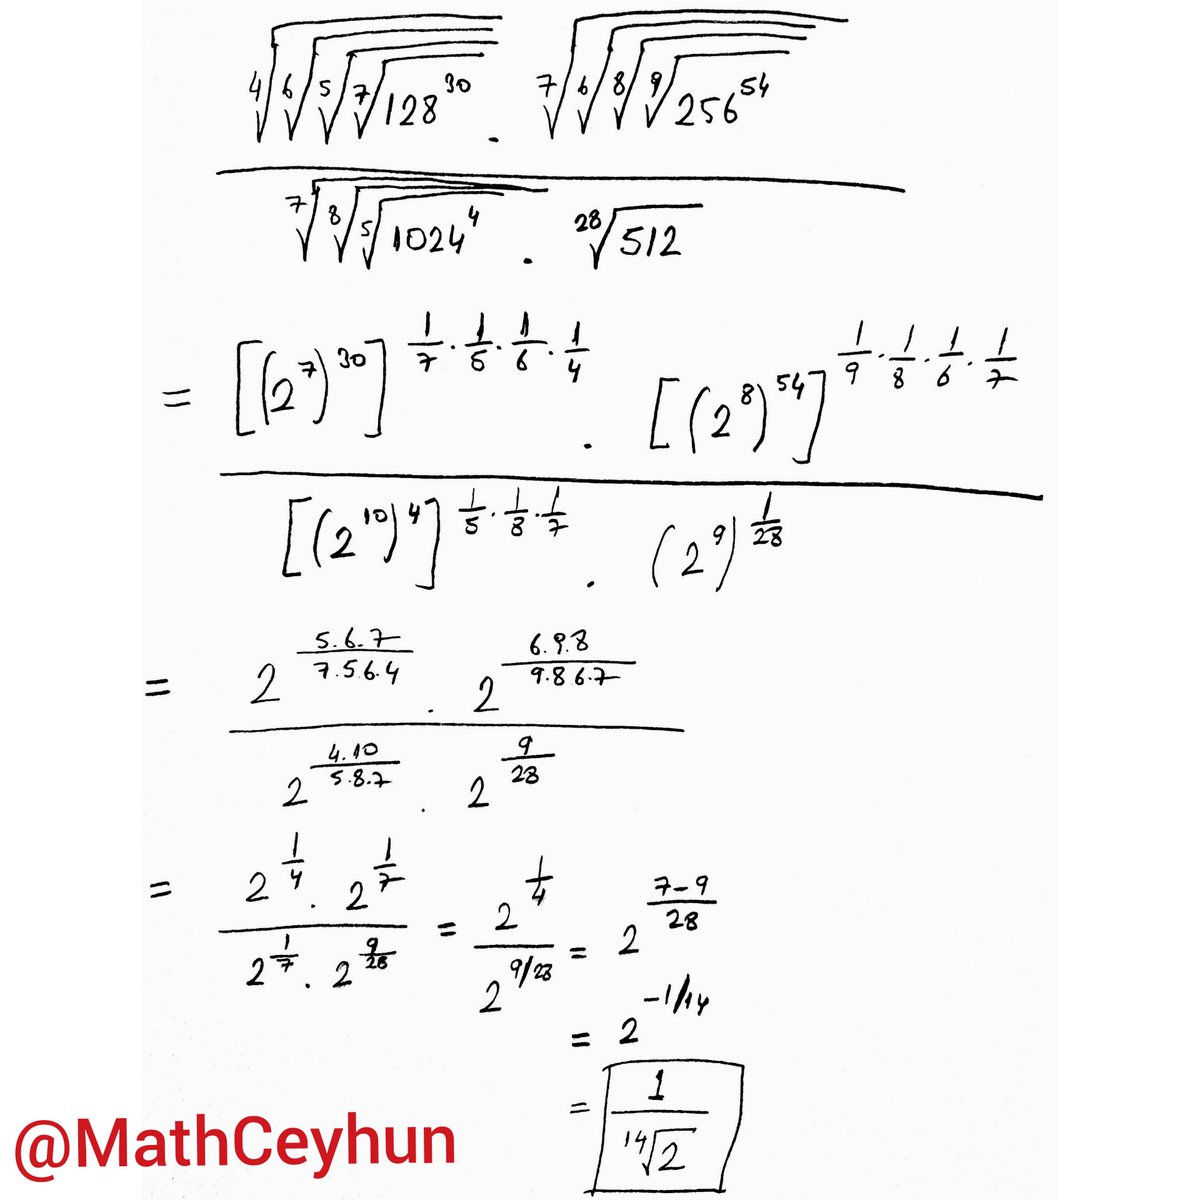 ⁴√⁶√⁵√⁷√128³⁰ . ⁷√⁶√⁸√⁹√256⁵⁴
⁷√⁸√⁵√1024⁴ . ²⁸√512
= [(2⁷)³⁰]^(1/7 · 1/5 · 1/6 · 1/4) . [(2⁸)⁵⁴]^(1/9 · 1/8 · 1/6 · 1/7)
[(2¹⁰)⁴]^(1/5 · 1/8 · 1/7) . (2⁹)^(1/28)
= 2^(5.6.7/7.5.6.4) . 2^(6.9.8/9.8.6.7)
2^(4.10/5.8.7) . 2^(9/28)
= 2^(1/4) . 2^(1/7) / 2^(1/7) . 2^(9/28) = 2^(1/4) / 2^(9/28) = 2^((7-9)/28)
= 2^(-1/14)
= 1/¹⁴√2
@MathCeyhun